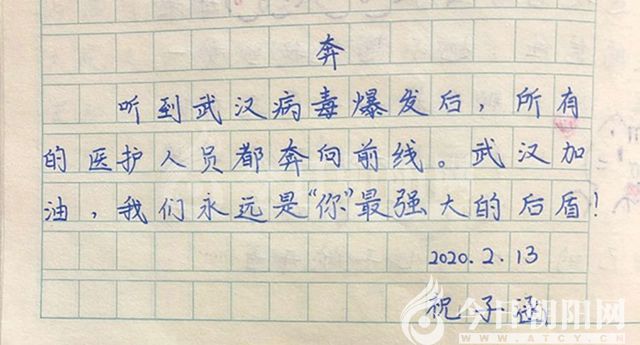 奔
听到武汉病毒爆发后，所有
的医护人员都奔向前线。武汉加
油，我们永远是“你”最强大的后盾！
2020.2.13
祝子涵
今日朝阳网
WWW.ATCY.CN